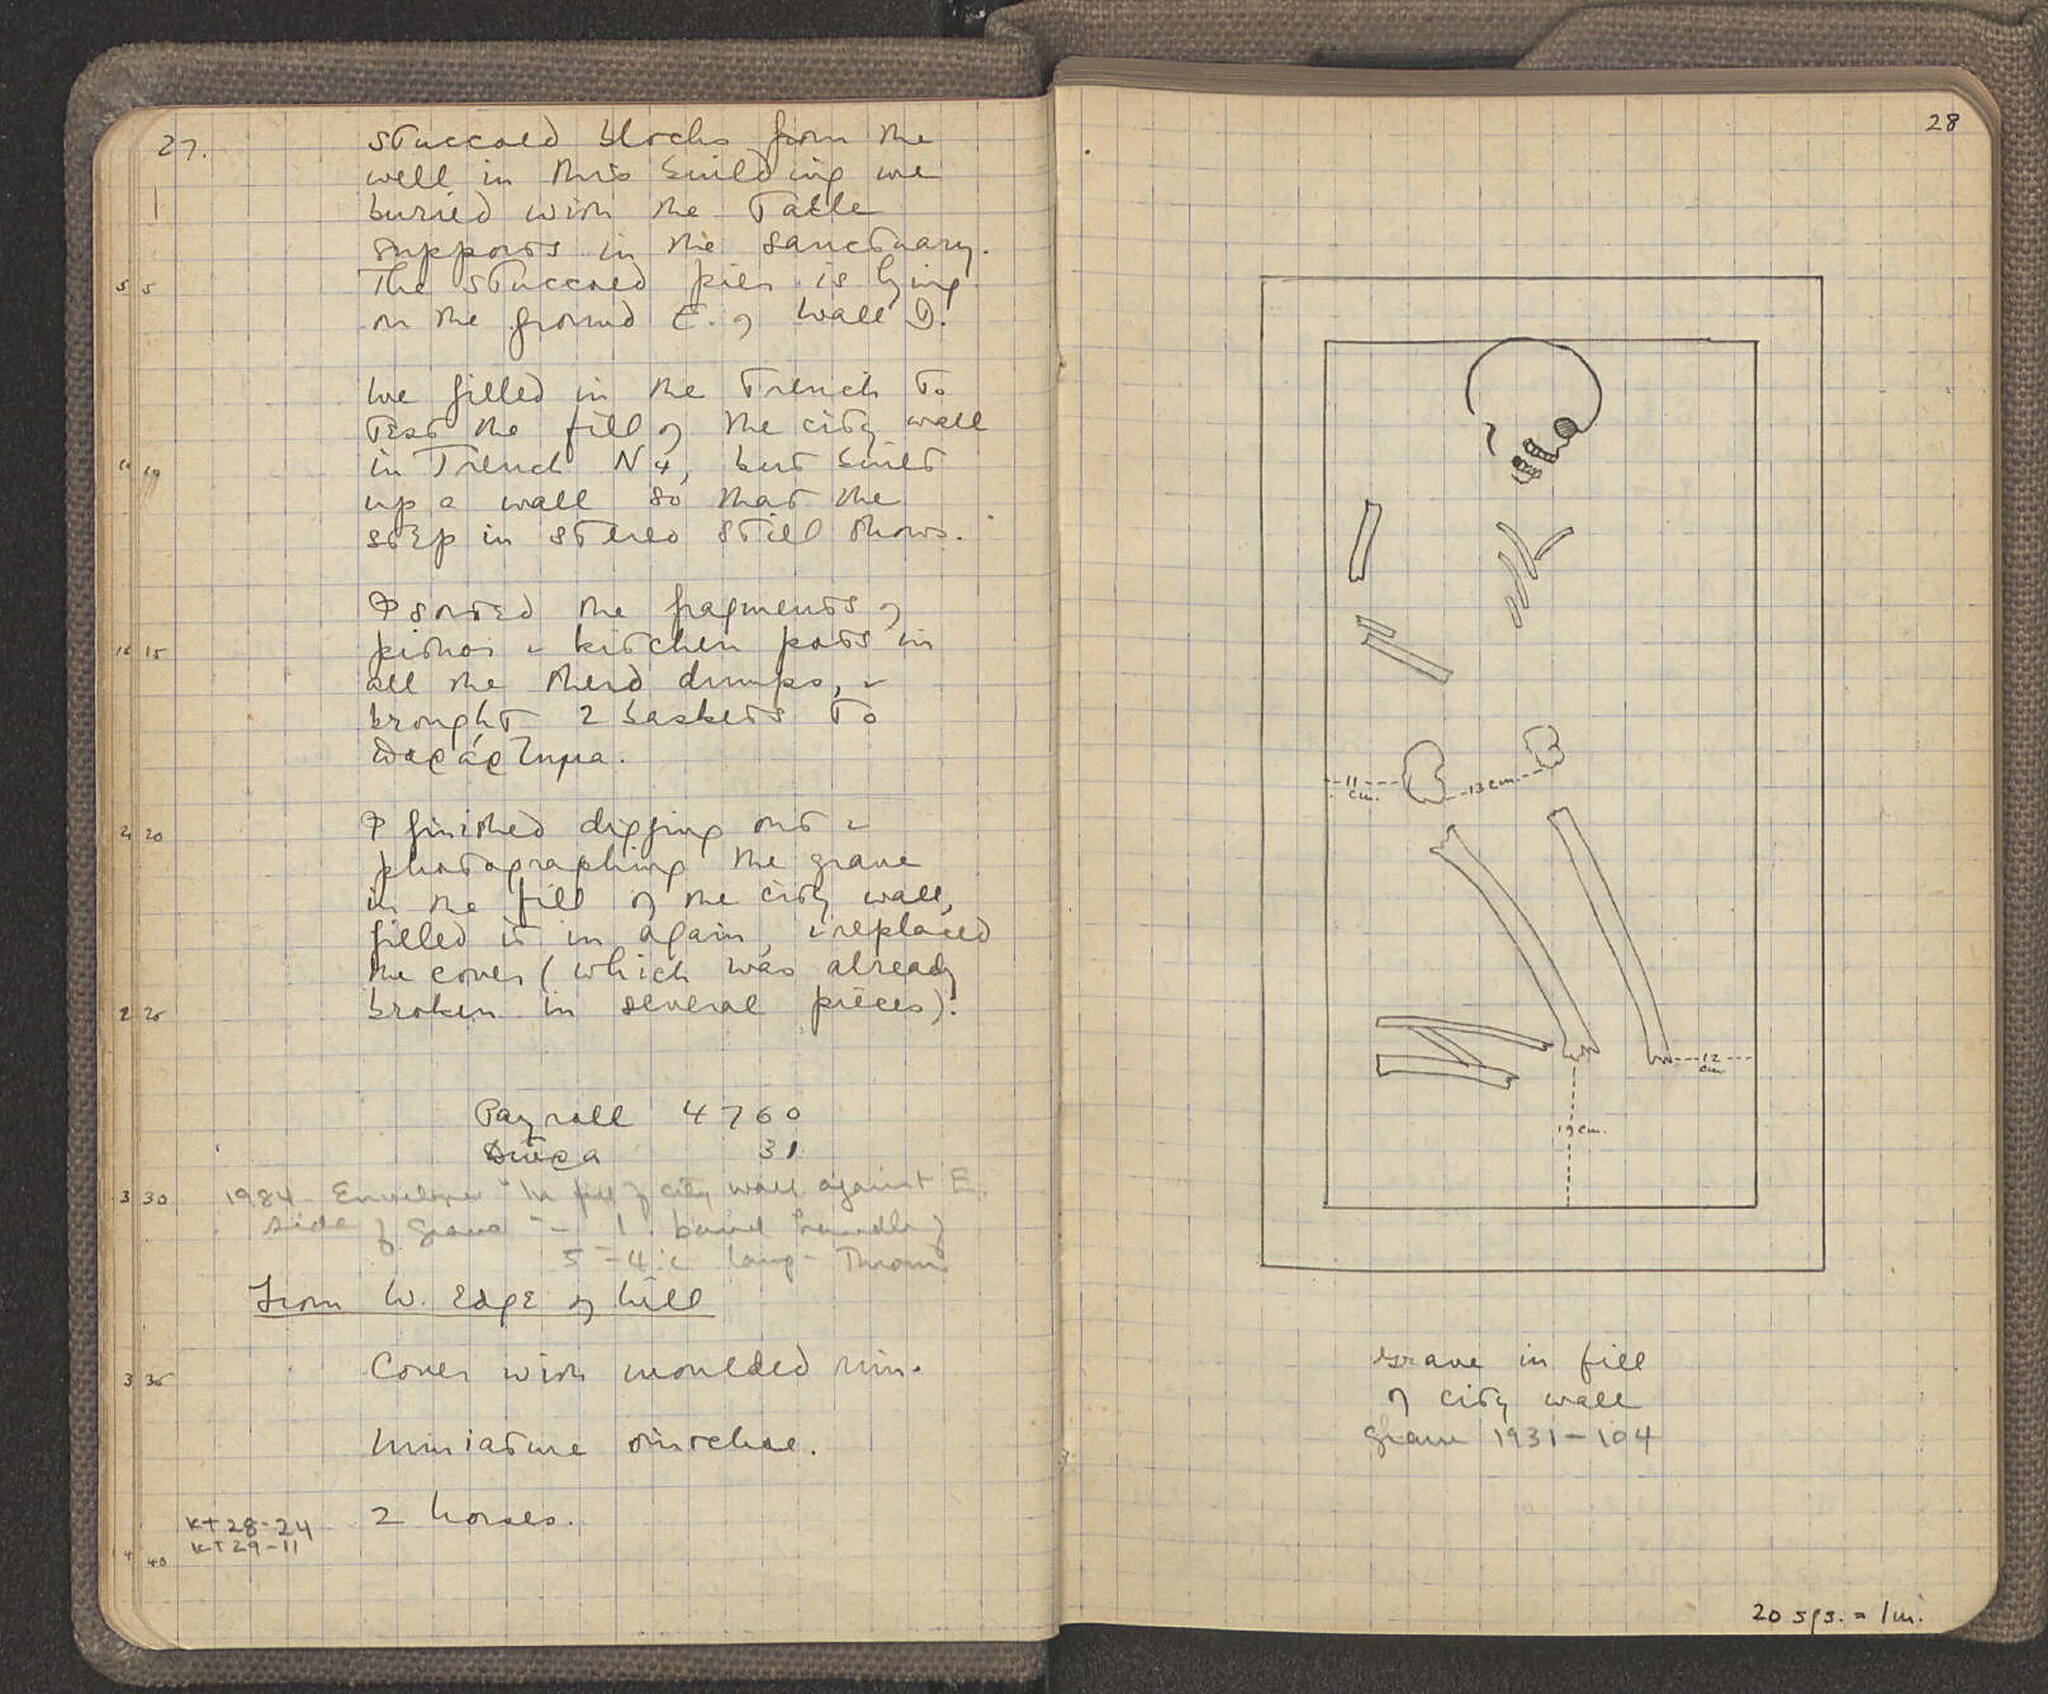 27.
stuccoed blocks from the
well in this building we
buried with the table
supports in the sanctuary.
5 5
The stuccoed pier is lying
on the ground E. of Wall D.
We filled in the trench to
test the fill of the city wall
10 10
in Trench N4, but built
up a wall so that the
step in stereo still shows.
I sorted the fragments of
15 15
pithoi & kitchen pots in
all the sherd dumps, &
brought 2 baskets to
παράρτημα.
2 20
I finished digging out &
photographing the grave
in the fill of the city wall,
filled it in again, & replaced
the cover (which was already
2 25
broken in several pieces).
Payroll 4760
31
3 30
1984 - Envelope "In fill of city wall against E.
side of Grave" - 1 band handle of
5-4 c lamp - Thrown
From W. Edge of hill
3 35
Cover with moulded rim.
Miniature oinochoe.
2 horses.
KT 28-24
KT 29-11
4 40
28
11
cm.
13 cm.
12
cm.
19 cm.
Grave in fill
of city wall
Grave 1931-104
20 sqs. = 1 m.